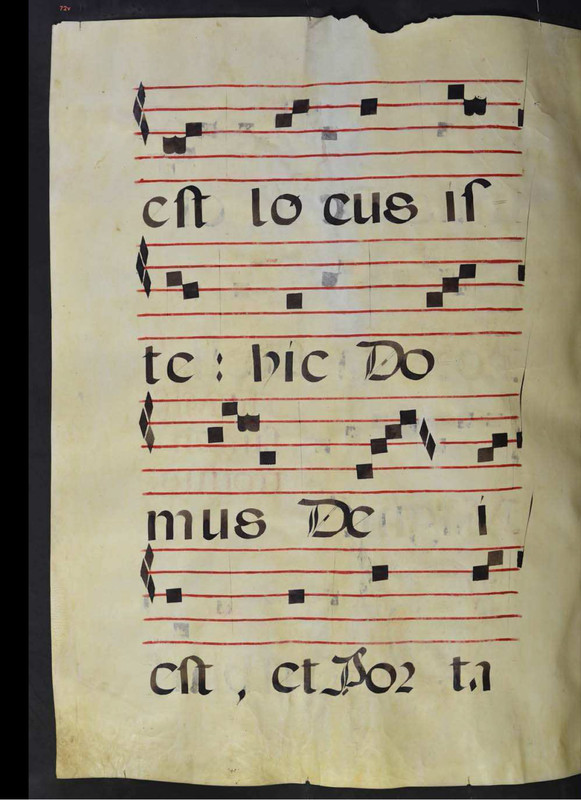 72v
est lo cus is
te : hic Do
mus De i
est , et Por ta